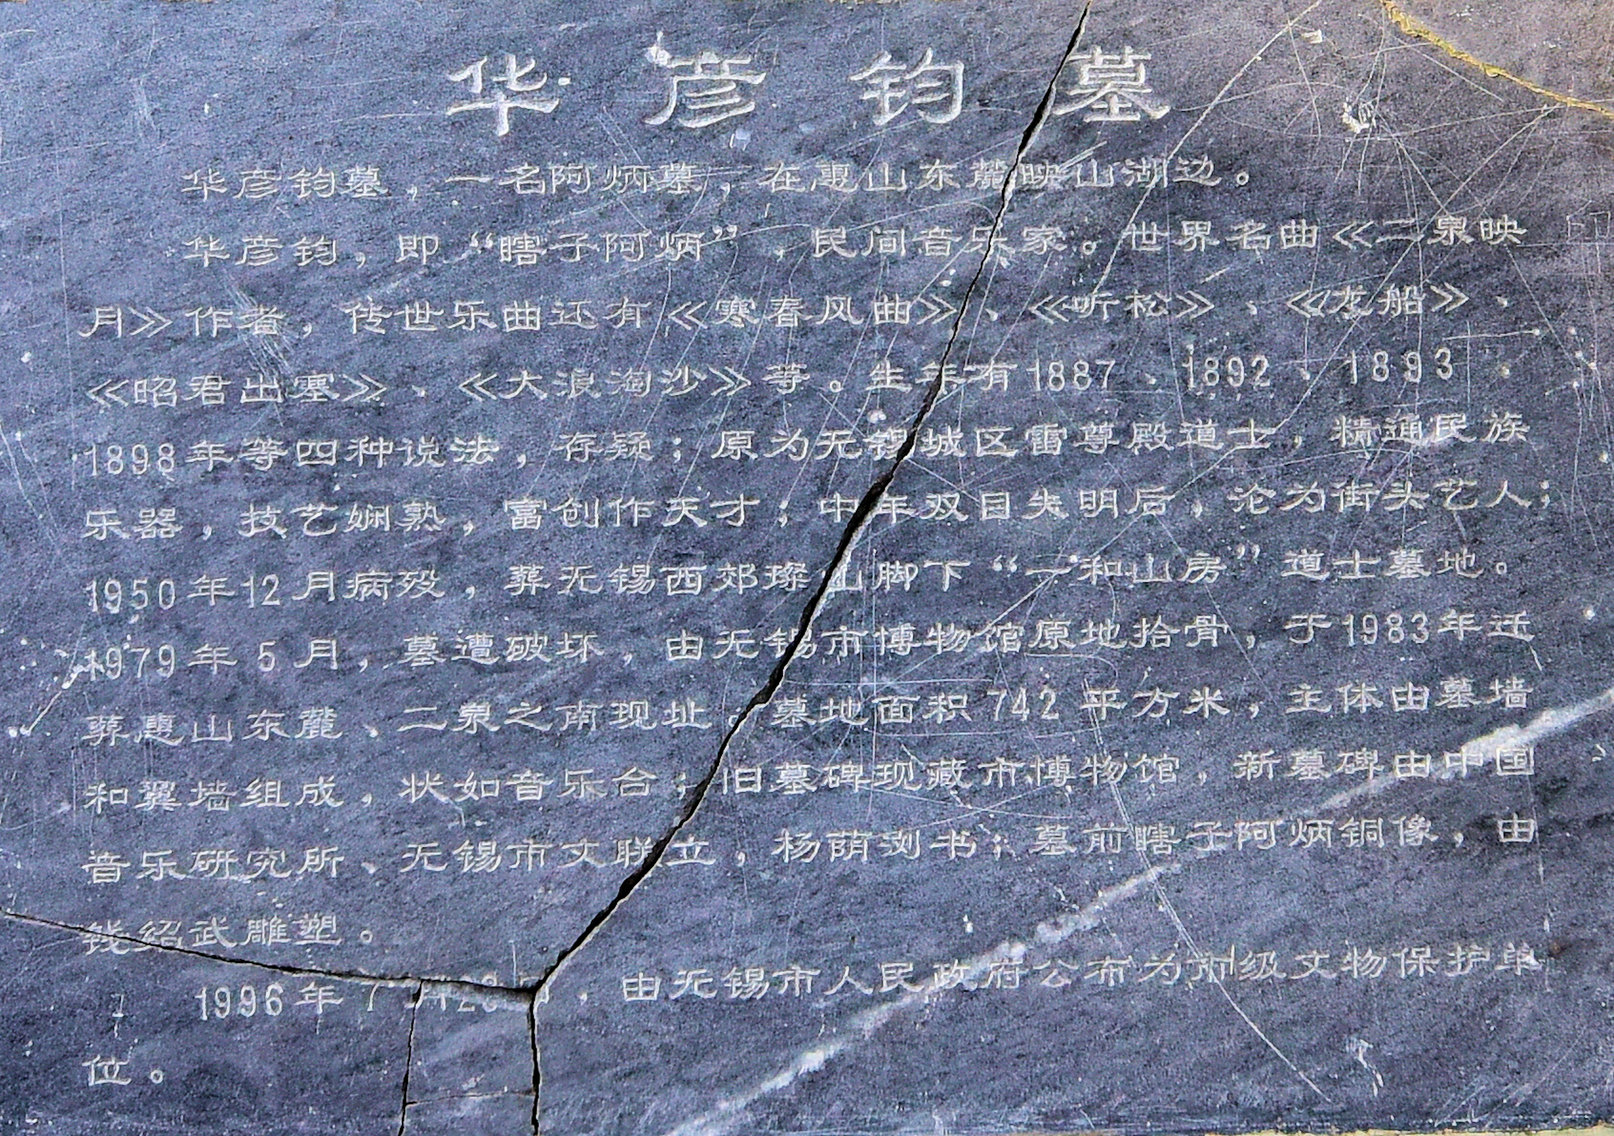 华彦钧墓
华彦钧墓，一名阿炳墓，在惠山东麓映山湖边。
华彦钧，即“瞎子阿炳”，民间音乐家。世界名曲《二泉映
月》作者，传世乐曲还有《寒春风曲》、《听松》、《龙船》、
《昭君出塞》、《大浪淘沙》等。生年有1887、1892、1893、
1898年等四种说法，存疑；原为无锡城区雷尊殿道士，精通民族
乐器，技艺娴熟，富创作天才；中年双目失明后，沦为街头艺人；
1950年12月病殁，葬无锡西郊璨山脚下“一和山房”道士墓地。
1979年5月，墓遭破坏，由无锡市博物馆原地拾骨，于1983年迁
葬惠山东麓、二泉之南现址。墓地面积742平方米，主体由墓墙
和翼墙组成，状如音乐台；旧墓碑现藏市博物馆，新墓碑由中国
音乐研究所、无锡市文联立，杨荫浏书；墓前瞎子阿炳铜像，由
钱绍武雕塑。
1996年 月，由无锡市人民政府公布为市级文物保护单
位。